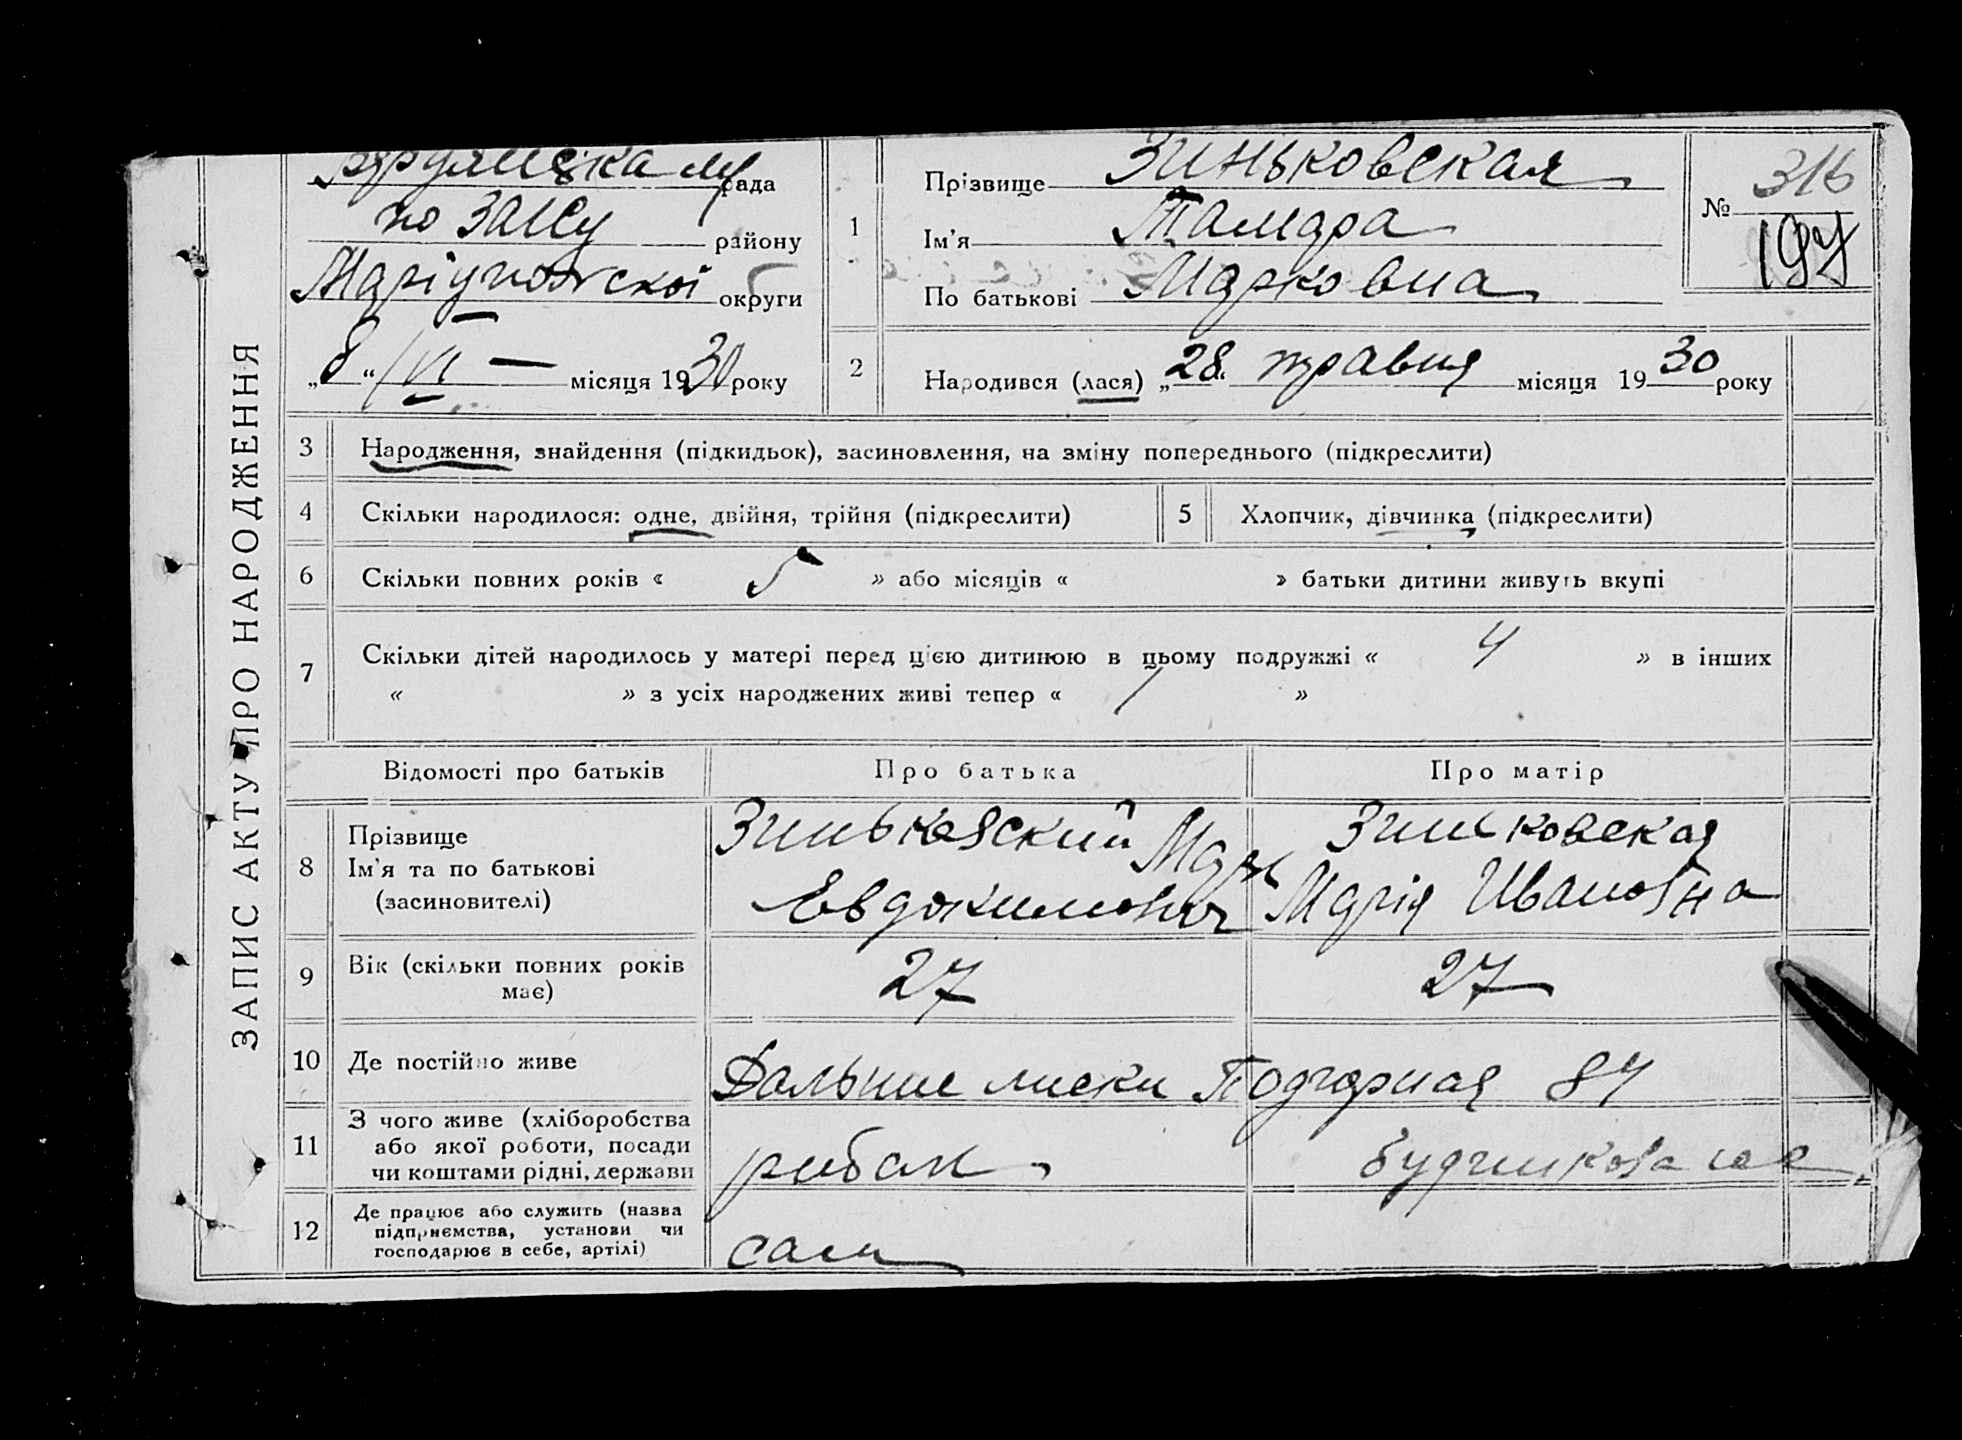 ЗАПИС АКТУ ПРО НАРОДЖЕННЯ
рада
по ЗАГСу району
Маріупольскої округи
„8“ VI місяця 1930 року
1
Прізвище Зиньковская
Ім'я Тамара
По батькові Марковна
№ 316
197
2
Народився (лася) „28“ травня місяця 1930 року
3 Народження, знайдення (підкидьок), засиновлення, на зміну попереднього (підкреслити)
4 Скільки народилося: одне, двійня, трійня (підкреслити)
5 Хлопчик, дівчинка (підкреслити)
6 Скільки повних років « 5 » або місяців « » батьки дитини живуть вкупі
7 Скільки дітей народилось у матері перед цією дитиною в цьому подружжі « 4 » в інших
« » з усіх народжених живі тепер « 1 »
Відомості про батьків Про батька Про матір
8
Прізвище
Ім'я та по батькові
(засиновителі)
Зиньковский Марк
Евдокимович
Зинковская
Марія Ивановна
9 Вік (скільки повних років
має)
27 27
10 Де постійно живе Дальние лиски Подгорная 84
11
З чого живе (хліборобства
або якої роботи, посади
чи коштами рідні, держави
рибак
12
Де працює або служить (назва
підприємства, установи чи
господарює в себе, артілі)
сам